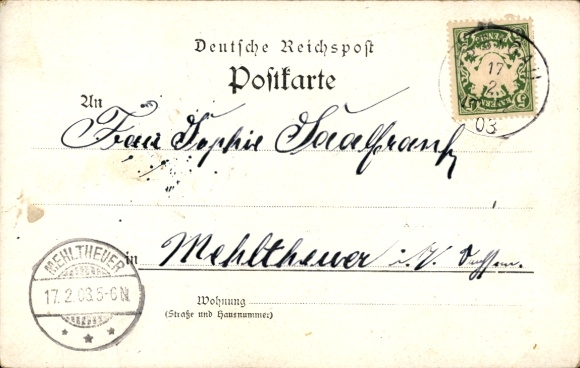 Deutsche Reichspost
Postkarte
An
Frau Sophie Saalfrank
in Mehltheuer i. V. Sachsen.
Wohnung
(Straße und Hausnummer)
MEHLTHEUER
17.2.03.5-6N.
17
2
03